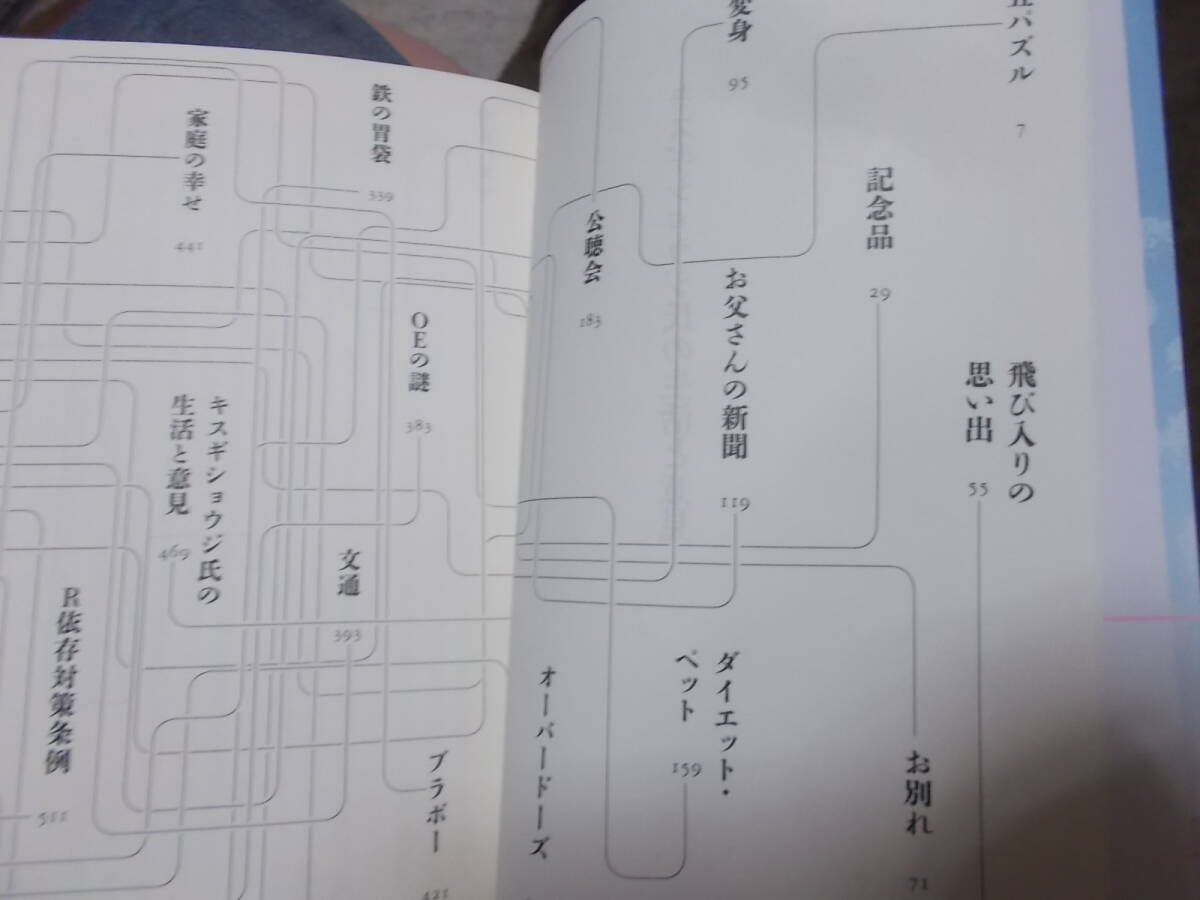 パズル
7
記念品
29
飛び入りの
思い出
55
お別れ
71
変身
95
お父さんの新聞
119
ダイエット・
ペット
159
公聴会
183
オーバードーズ
鉄の胃袋
339
OEの謎
383
文通
393
ブラボー
421
家庭の幸せ
441
キスギショウジ氏の
生活と意見
469
R依存対策条例
511